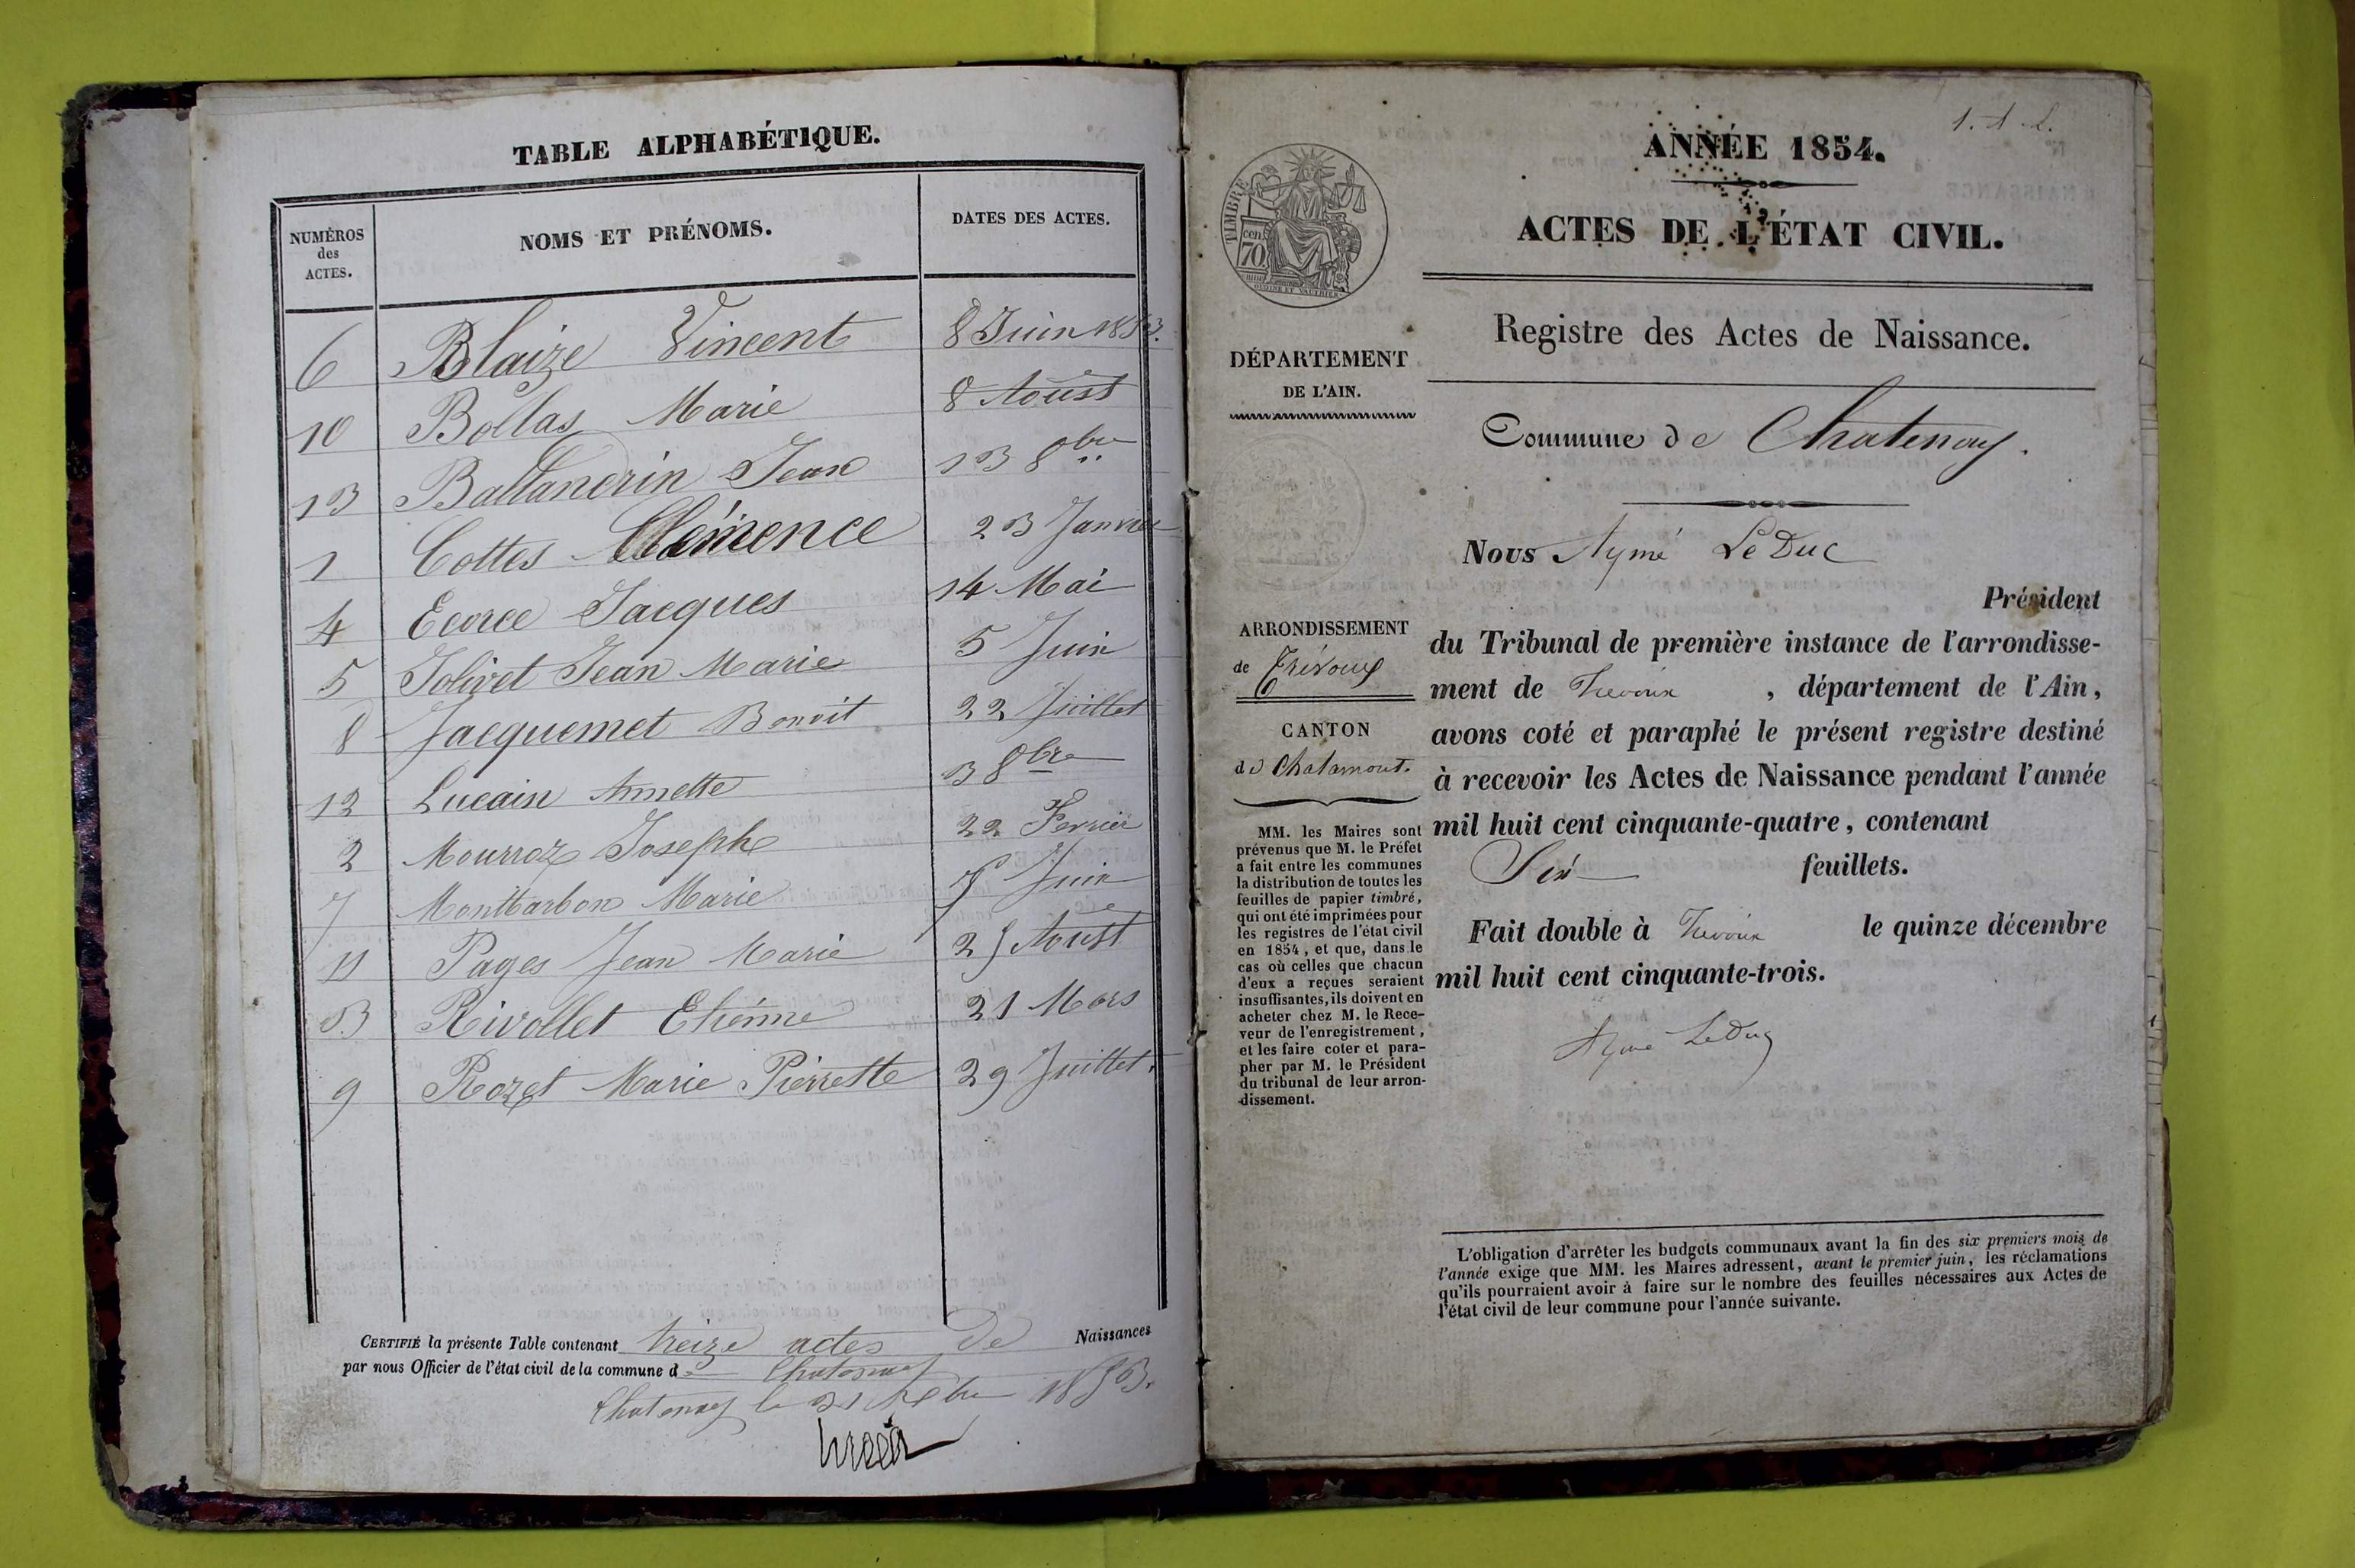 TABLE ALPHABÉTIQUE.
NUMÉROS des ACTES.
NOMS ET PRÉNOMS.
DATES DES ACTES.
6 Blaize Vincent 8 Juin 1853.
10 Bollas Marie 8 Aoust
13 Ballandrin Jean 13 8bre
1 Cottes Clémence 23 Janvier
4 Ecorce Jacques 14 Mai
5 Jolivet Jean Marie 5 Juin
8 Jacquemet Benoit 22 Juillet
12 Lucain Annette 3 8bre
2 Mourroz Joseph 22 Fevrier
7 Montbarbon Marie Juin
11 Pages Jean Marie 25 Aoust
3 Rivollet Etienne 21 Mars
9 Rozet Marie Pierrette 29 Juillet.
CERTIFIÉ la présente Table contenant treize actes De Naissances
par nous Officier de l'état civil de la commune de Chatenay
Chatenay le 31 Xbre 1853.
1. A. L.
ANNÉE 1854.
ACTES DE L'ÉTAT CIVIL.
TIMBRE
cen. 70
Registre des Actes de Naissance.
DÉPARTEMENT
DE L'AIN.
Commune de Chatenay.
Nous Aymé LeDuc
Président
du Tribunal de première instance de l'arrondisse-
ment de Trevoux, département de l'Ain,
avons coté et paraphé le présent registre destiné
à recevoir les Actes de Naissance pendant l'année
mil huit cent cinquante-quatre, contenant
Six feuillets.
Fait double à Trevoux le quinze décembre
mil huit cent cinquante-trois.
Aymé LeDuc
ARRONDISSEMENT
de Trévoux
CANTON
de Chalamont.
MM. les Maires sont
prévenus que M. le Préfet
a fait entre les communes
la distribution de toutes les
feuilles de papier timbré,
qui ont été imprimées pour
les registres de l'état civil
en 1854, et que, dans le
cas où celles que chacun
d'eux a reçues seraient
insuffisantes, ils doivent en
acheter chez M. le Rece-
veur de l'enregistrement,
et les faire coter et para-
pher par M. le Président
du tribunal de leur arron-
dissement.
L'obligation d'arrêter les budgets communaux avant la fin des six premiers mois de
l'année exige que MM. les Maires adressent, avant le premier juin, les réclamations
qu'ils pourraient avoir à faire sur le nombre des feuilles nécessaires aux Actes de
l'état civil de leur commune pour l'année suivante.